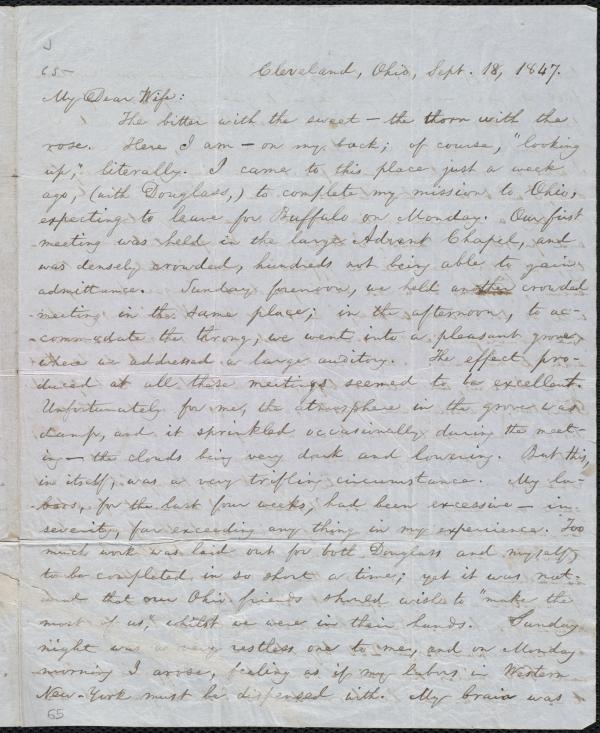 65
Cleveland, Ohio, Sept. 18, 1847.
My Dear Wife:
The bitter with the sweet – the thorn with the
rose. Here I am – on my back; of course, "looking
up," literally. I came to this place just a week
ago, (with Douglass,) to complete my mission to Ohio,
expecting to leave for Buffalo on Monday. Our first
meeting was held in the large Advent Chapel, and
was densely crowded, hundreds not being able to gain
admittance. Sunday forenoon, we held another crowded
meeting in the same place; in the afternoon, to ac-
commodate the throng, we went into a pleasant grove,
where we addressed a large auditory. The effect pro-
duced at all these meetings seemed to be excellent.
Unfortunately for me, the atmosphere in the grove was
damp, and it sprinkled occasionally during the meet-
ing – the clouds being very dark and lowering. But this,
in itself, was a very trifling circumstance. My la-
bors, for the last four weeks, had been excessive – in
severity, far exceeding any thing in my experience. Too
much work was laid out for both Douglass and myself,
to be completed in so short a time; yet it was nat-
ural that our Ohio friends should wish to "make the
most of us," whilst we were in their hands. Sunday
night was a very restless one to me, and on Monday
morning I arose, feeling as if my labors in Western
New-York must be dispensed with. My brain was
65